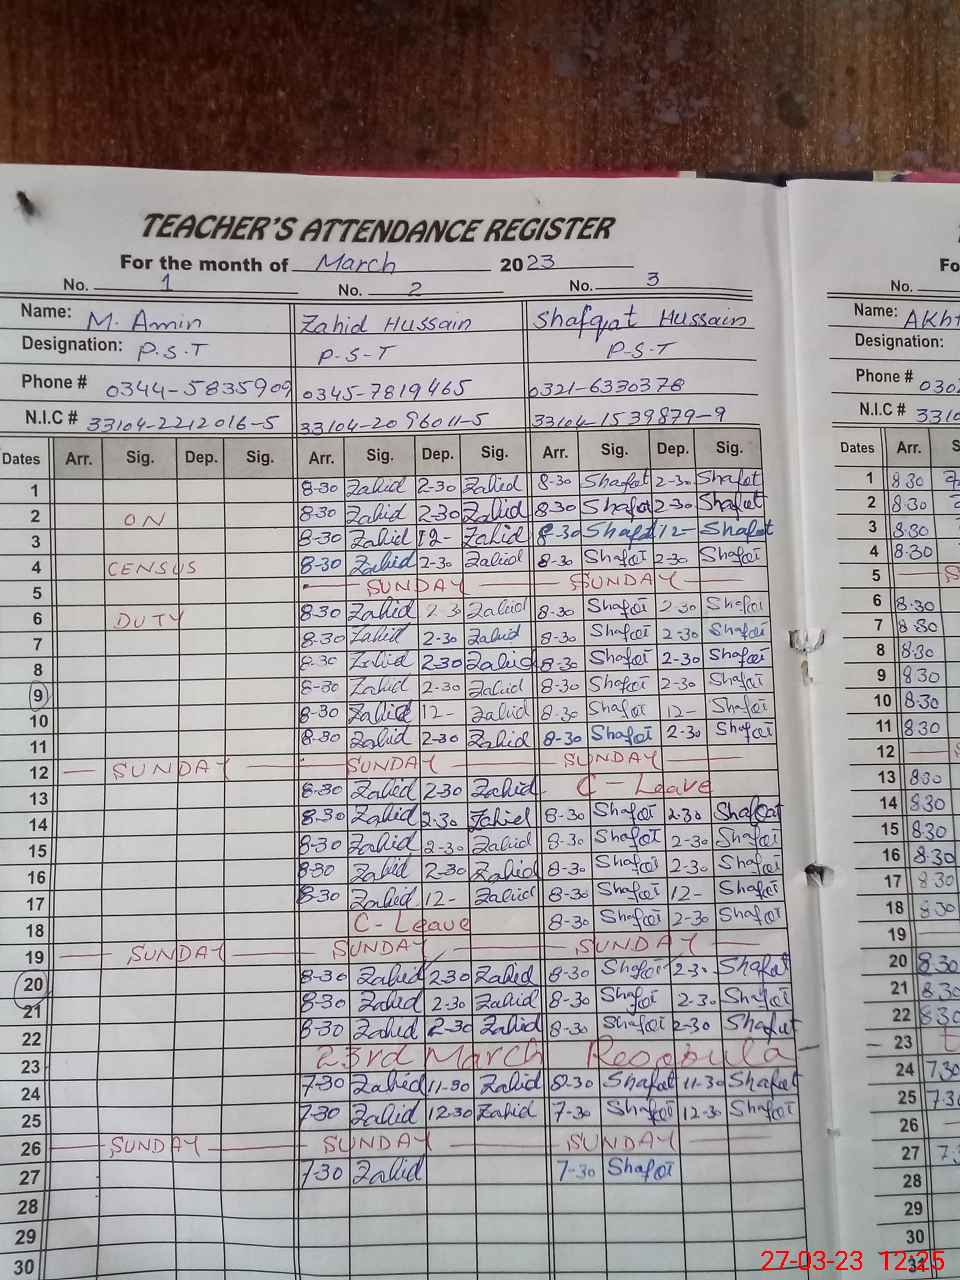 TEACHER'S ATTENDANCE REGISTER
For the month of March 2023
No. 1 No. 2 No. 3 No.
Name: M. Amin Zahid Hussain Shafqat Hussain Name: AKht
Designation: P.S.T P-S-T P-S-T Designation:
Phone # 0344-5835909 0345-7819465 0321-6330378 Phone # 030
N.I.C # 33104-2212016-5 33104-2096011-5 33104-1539879-9 N.I.C # 3310
Dates Arr. Sig. Dep. Sig. Arr. Sig. Dep. Sig. Arr. Sig. Dep. Sig. Dates Arr. S
1 8-30 Zahid 2-30 Zahid 8-30 Shafat 2-30 Shafat 1 830
2 ON 8-30 Zahid 2-30 Zahid 8-30 Shafat 2-30 Shafat 2 8.30
3 8-30 Zahid 12- Zahid 8-30 Shafat 12- Shafat 3 8.30
4 CENSUS 8-30 Zahid 2-30 Zahid 8-30 Shafqt 2-30 Shafqt 4 8.30
5 SUNDAY SUNDAY 5 S
6 DUTY 8-30 Zahid 2-30 Zahid 8-30 Shafqt 2-30 Shafqt 6 8.30
7 8-30 Zahid 2-30 Zahid 8-30 Shafqt 2-30 Shafqt 7 8.30
8 8-30 Zahid 2-30 Zahid 8-30 Shafqt 2-30 Shafqt 8 8.30
9 8-30 Zahid 2-30 Zahid 8-30 Shafqt 2-30 Shafqt 9 8.30
10 8-30 Zahid 12- Zahid 8-30 Shafqt 12- Shafqt 10 8.30
11 8-30 Zahid 2-30 Zahid 8-30 Shafqt 2-30 Shafqt 11 8.30
12 SUNDAY SUNDAY SUNDAY 12
13 8-30 Zahid 2-30 Zahid C-Leave 13 8.30
14 8-30 Zahid 2-30 Zahid 8-30 Shafqt 2-30 Shafqat 14 8.30
15 8-30 Zahid 2-30 Zahid 8-30 Shafqt 2-30 Shafqt 15 8.30
16 8-30 Zahid 2-30 Zahid 8-30 Shafqt 2-30 Shafqt 16 8.30
17 8-30 Zahid 12- Zahid 8-30 Shafqt 12- Shafqt 17 8.30
18 C-Leave 8-30 Shafqt 2-30 Shafqt 18 8.30
19 SUNDAY SUNDAY SUNDAY 19
20 8-30 Zahid 2-30 Zahid 8-30 Shafqt 2-30 Shafqt 20 8.30
21 8-30 Zahid 2-30 Zahid 8-30 Shafqt 2-30 Shafqt 21 8.30
22 8-30 Zahid 2-30 Zahid 8-30 Shafqt 2-30 Shafut 22 8.30
23 23rd March 23
24 7-30 Zahid 11-30 Zahid 8-30 Shafat 11-30 Shafat 24 7.30
25 7-30 Zahid 12-30 Zahid 7-30 Shafat 12-30 Shafqt 25 7.3
26 SUNDAY SUNDAY SUNDAY 26
27 7-30 Zahid 7-30 Shafqt 27 7.3
28 28
29 29
30 30
31
27-03-23 12:25